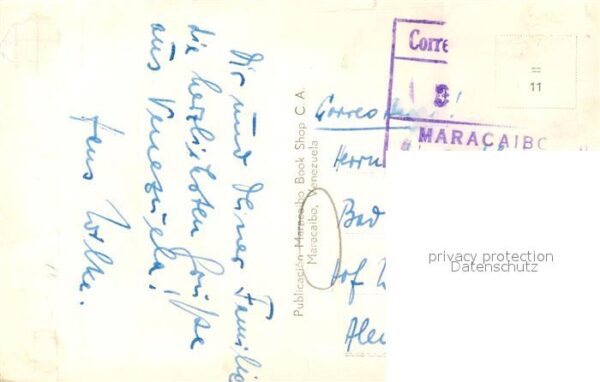 Dir und Deiner Familie
die herzlichsten Grüße
aus Venezuela!
Publicación Maracaibo Book Shop C. A.
Maracaibo, Venezuela
Corre
MARACAIBO
11
Correo
Herrn
Bad
Hof
privacy protection
Datenschutz